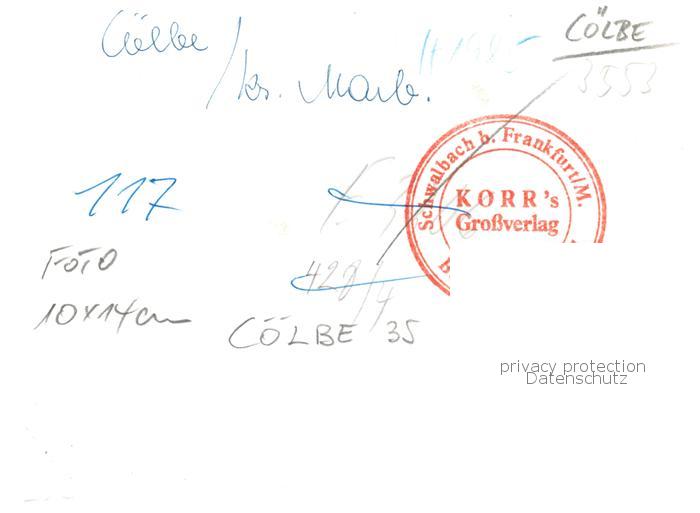 Cölbe
/ Krs. Marb.
CÖLBE
3553
Schwalbach b. Frankfurt/M.
KORR's
Großverlag
117
428/4
FOTO
10x14cm
CÖLBE 35
privacy protection
Datenschutz